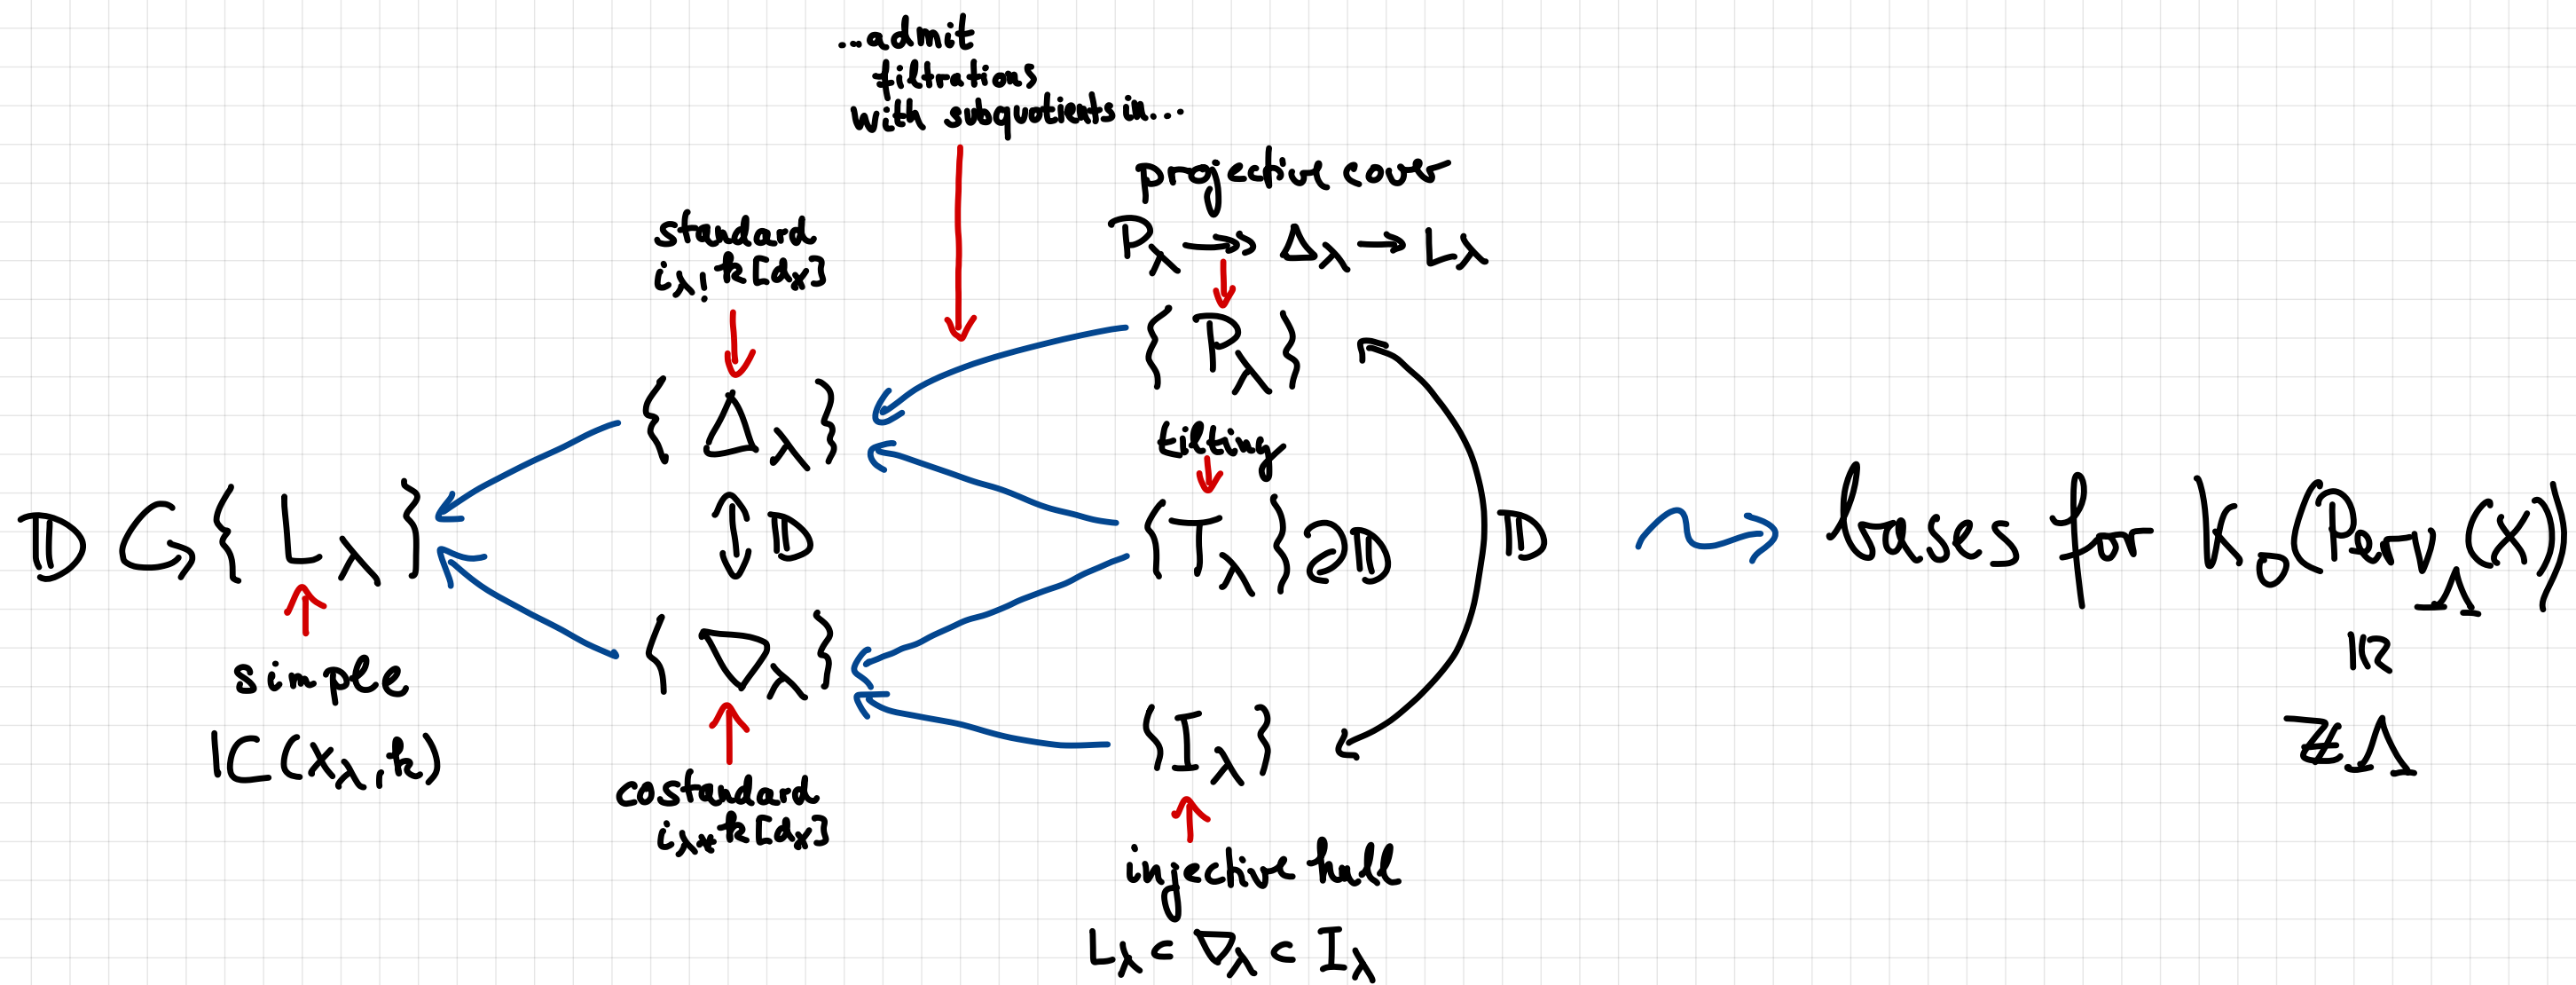 ...admit
filtrations
with subquotients in...
projective cover
P_λ ↠ Δ_λ → L_λ
standard
i_λ! k[d_λ]
{ P_λ }
{ Δ_λ }
tilting
𝔻 ↻ { L_λ }
↕ 𝔻
{ T_λ } ↺ 𝔻
𝔻
⇝ bases for K₀(Perv_Λ(X))
≅
ℤΛ
{ ∇_λ }
simple
IC(X_λ, k)
costandard
i_λ* k[d_λ]
{ I_λ }
injective hull
L_λ ⊂ ∇_λ ⊂ I_λ